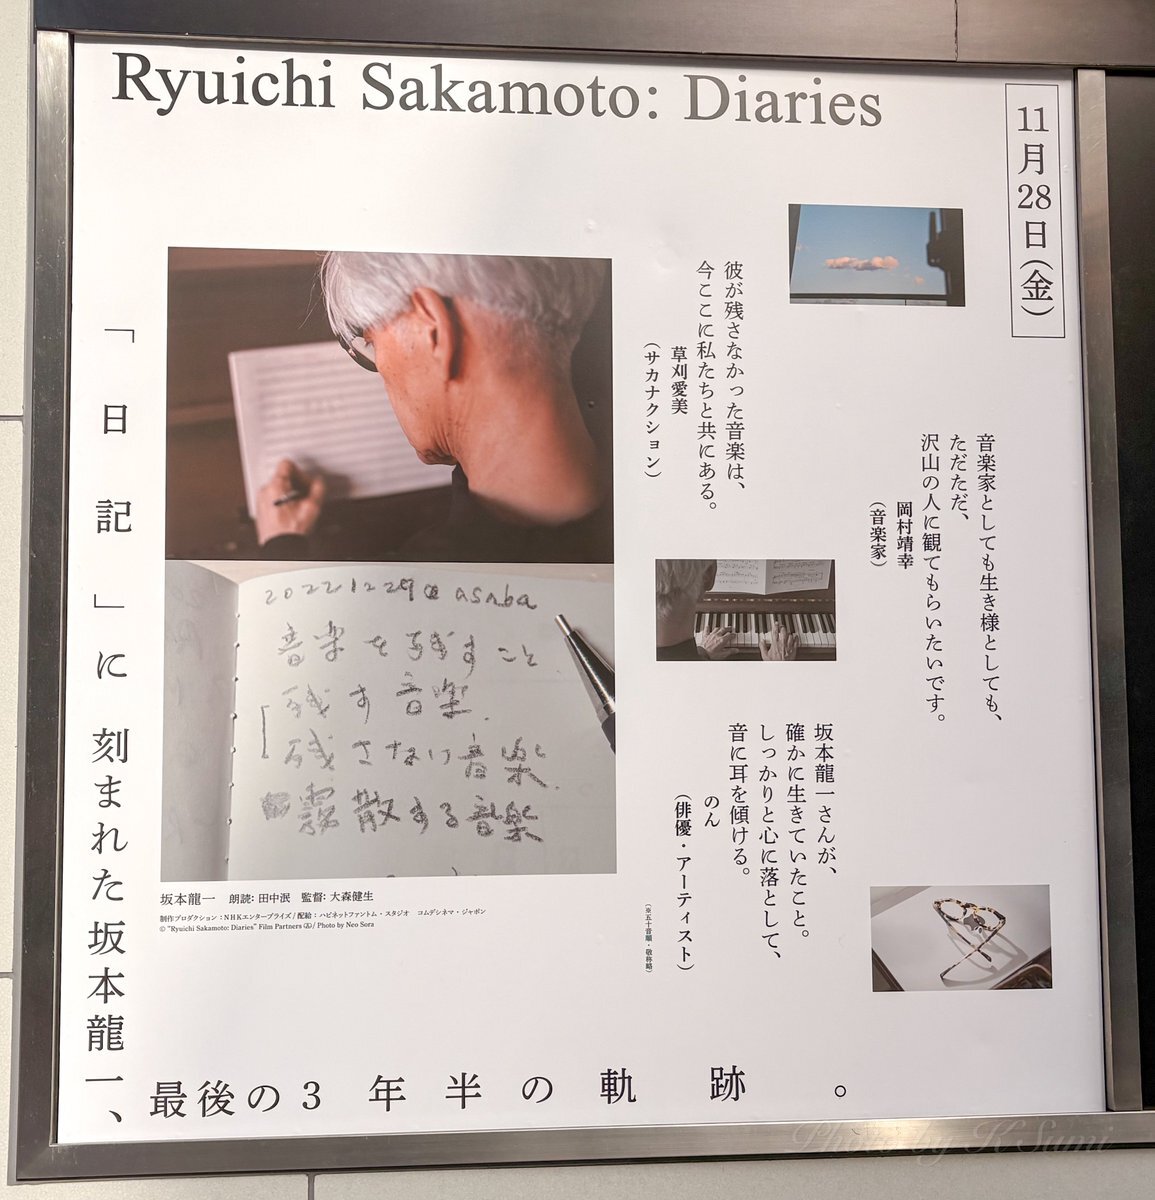 Ryuichi Sakamoto: Diaries
11月28日(金)
音楽家としても生き様としても、
ただただ、
沢山の人に観てもらいたいです。
岡村靖幸
(音楽家)
彼が残さなかった音楽は、
今ここに私たちと共にある。
草刈愛美
(サカナクション)
坂本龍一さんが、
確かに生きていたこと。
しっかりと心に落として、
音に耳を傾ける。
のん
(俳優・アーティスト)
(※五十音順・敬称略)
20221229@asaba
音楽を残すこと
残す音楽.
残さない音楽.
霧散する音楽
坂本龍一 朗読: 田中泯 監督: 大森健生
制作プロダクション：NHKエンタープライズ / 配給：ハピネットファントム・スタジオ コムデシネマ・ジャポン
© "Ryuichi Sakamoto: Diaries" Film Partners / Photo by Neo Sora
「日記」に刻まれた坂本龍一、
最後の3年半の軌跡。
Photo by K Sumi